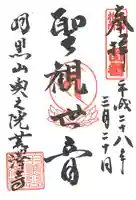 奉拝
平成二十八年
三月二十日
聖観世音
羽黒山奥之院